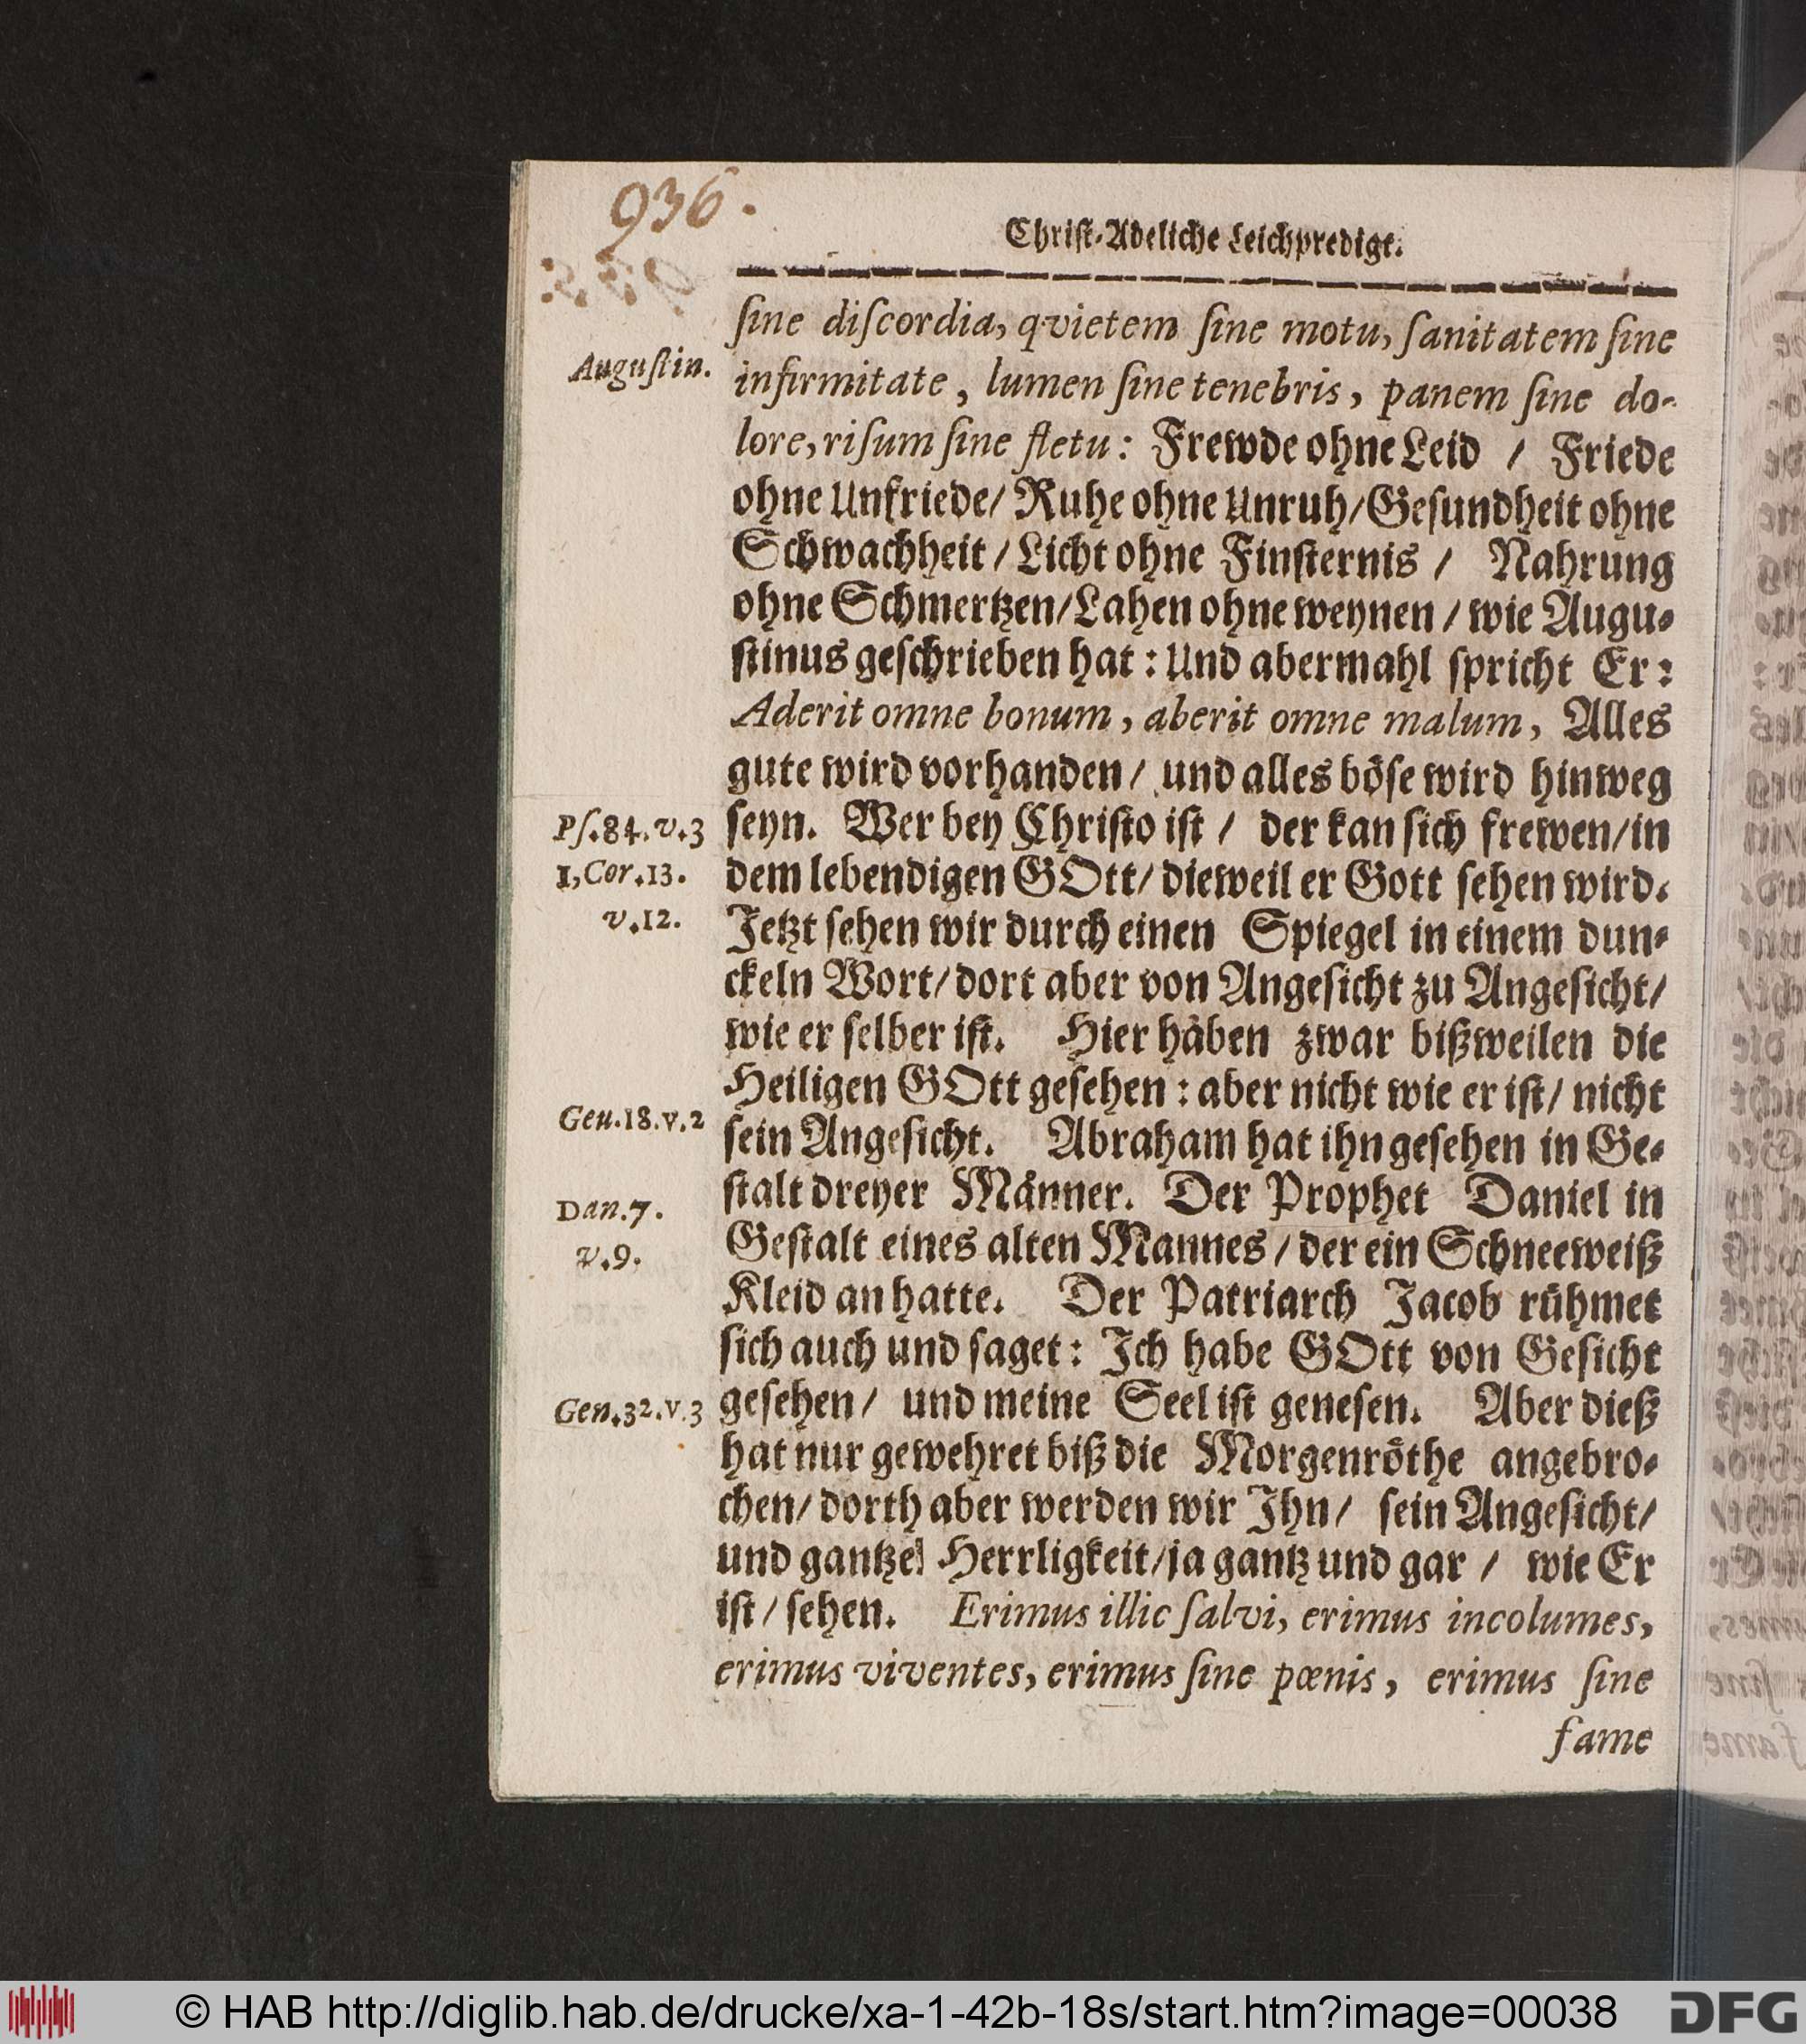 936.
Christ-Adeliche Leichpredigt.
ſine diſcordia, qvietem ſine motu, ſanitatem ſine
Auguſtin.
infirmitate, lumen ſine tenebris, panem ſine do-
lore, riſum ſine fletu: Frewde ohne Leid / Friede
ohne Unfriede/ Ruhe ohne Unruh/Geſundheit ohne
Schwachheit/Licht ohne Finſternis / Nahrung
ohne Schmertzen/Lahen ohne weynen / wie Augu-
ſtinus geſchrieben hat: Und abermahl ſpricht Er:
Aderit omne bonum, aberit omne malum, Alles
gute wird vorhanden/ und alles böſe wird hinweg
Pſ.84.v.3
ſeyn. Wer bey Chriſto iſt / der kan ſich frewen/in
1,Cor.13.
dem lebendigen GOtt/ dieweil er Gott ſehen wird.
v.12.
Jetzt ſehen wir durch einen Spiegel in einem dun-
ckeln Wort/ dort aber von Angeſicht zu Angeſicht/
wie er ſelber iſt. Hier haben zwar bißweilen die
Heiligen GOtt geſehen: aber nicht wie er iſt/ nicht
Gen.18.v.2
ſein Angeſicht. Abraham hat ihn geſehen in Ge-
ſtalt dreyer Männer. Der Prophet Daniel in
Dan.7.
Geſtalt eines alten Mannes / der ein Schneeweiß
v.9.
Kleid an hatte. Der Patriarch Jacob rühmet
ſich auch und ſaget: Ich habe GOtt von Geſicht
Gen.32.v.3
geſehen/ und meine Seel iſt geneſen. Aber dieß
hat nur gewehret biß die Morgenröthe angebro-
chen/ dorth aber werden wir Ihn/ ſein Angeſicht/
und gantze Herrligkeit/ja gantz und gar / wie Er
iſt / ſehen. Erimus illic ſalvi, erimus incolumes,
erimus viventes, erimus ſine pœnis, erimus ſine
fame
© HAB http://diglib.hab.de/drucke/xa-1-42b-18s/start.htm?image=00038
DFG